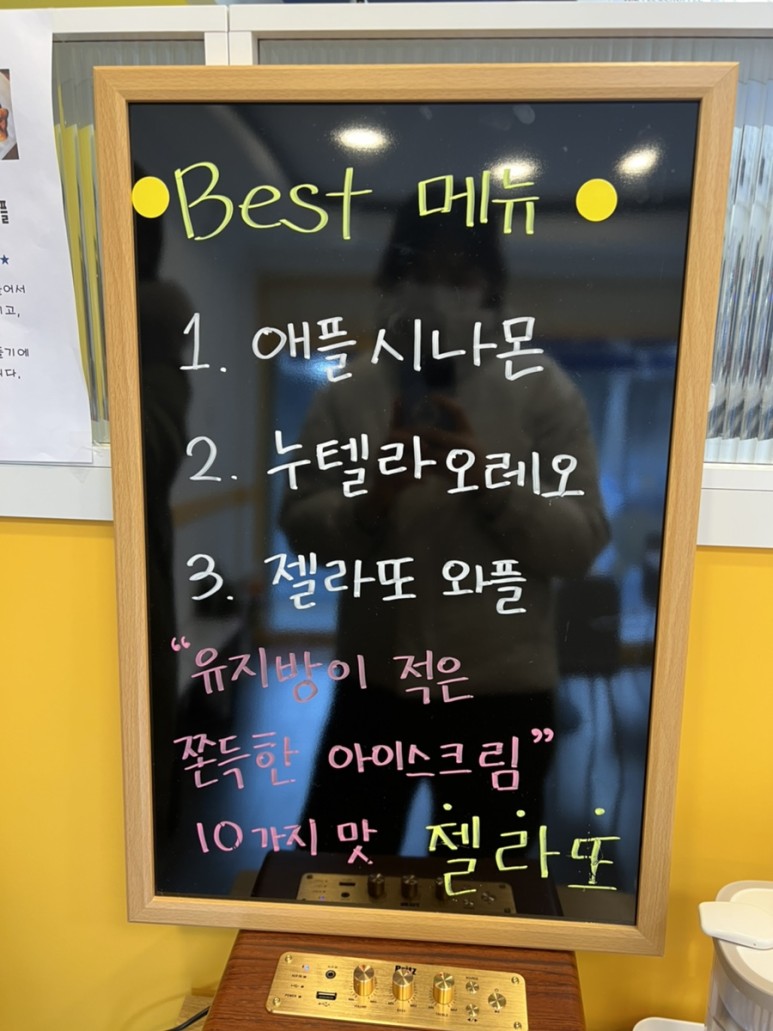 Best 메뉴
1. 애플시나몬
2. 누텔라오레오
3. 젤라또 와플
“유지방이 적은
쫀득한 아이스크림”
10가지 맛 젤라또
플
★